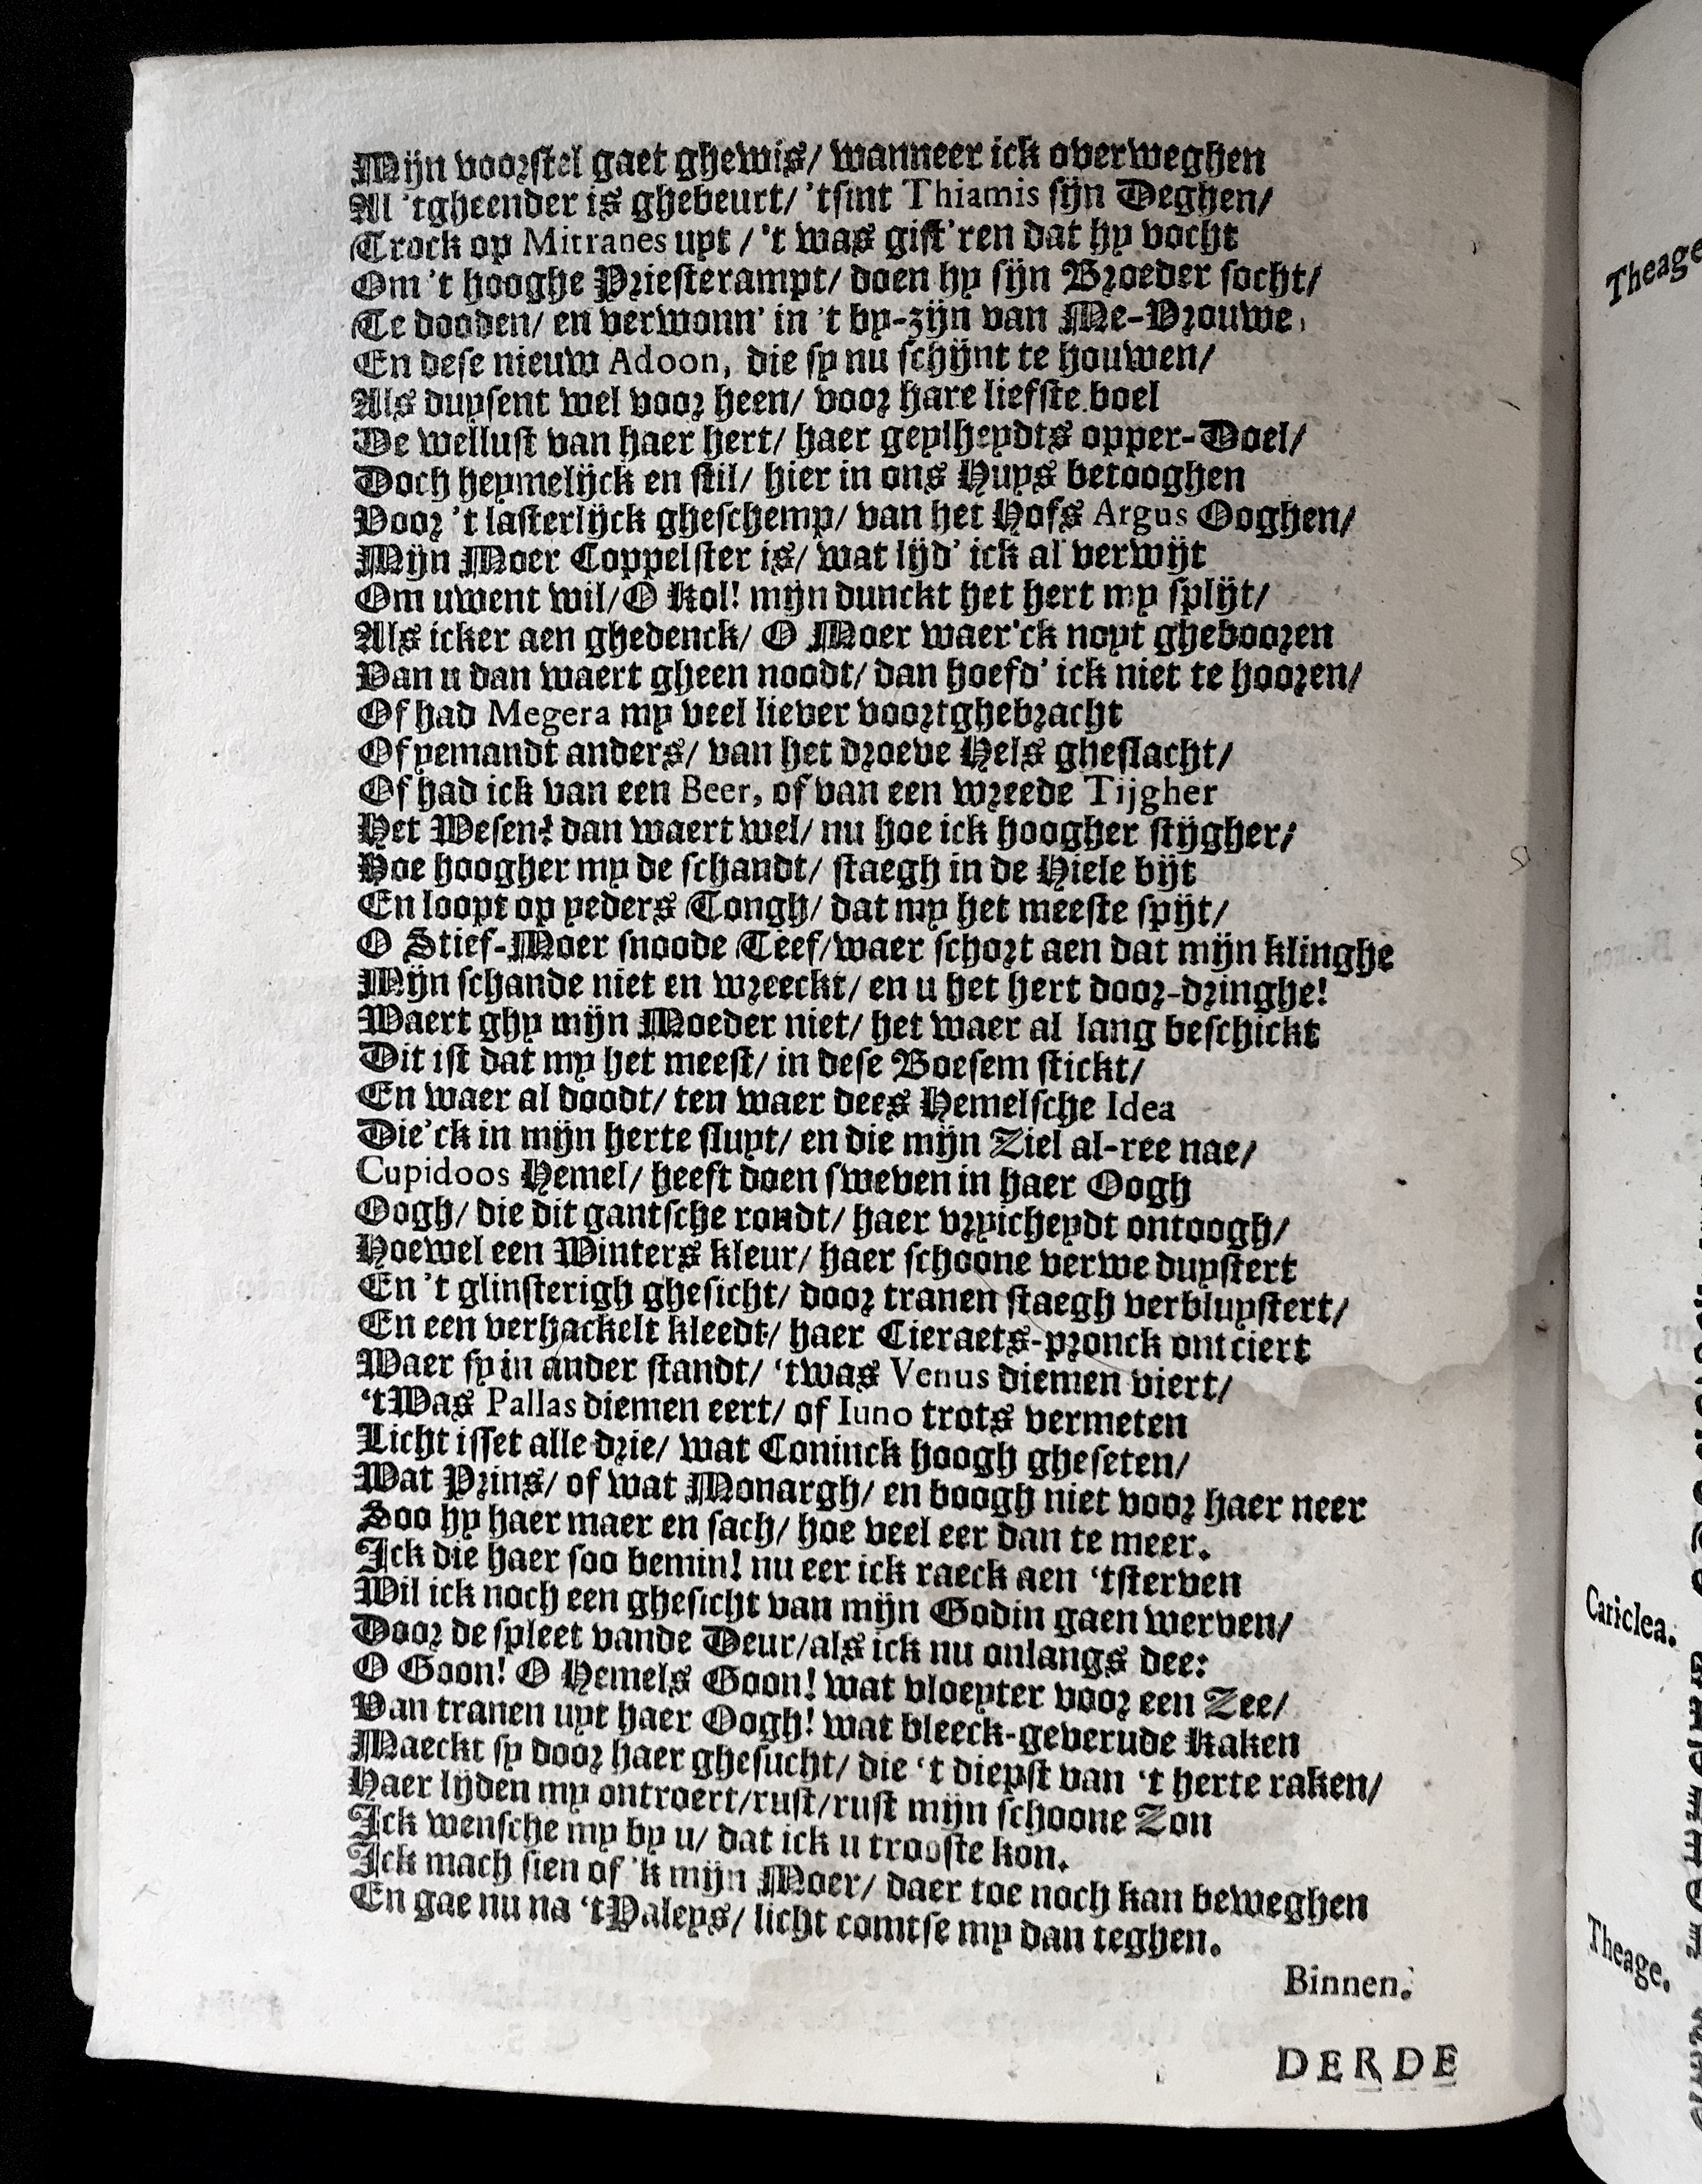 Mijn voorstel gaet ghewis/ wanneer ick overweghen
Al 'tgheender is ghebeurt/ 'tsint Thiamis sijn Deghen/
Trock op Mitranes uyt / 't was gist'ren dat hy vocht
Om 't hooghe Priesterampt/ doen hy sijn Broeder socht/
Te dooden/ en verwonn' in 't by-zijn van Me-Vrouwe,
En dese nieuw Adoon, die sy nu schijnt te houwen/
Als duysent wel voor heen/ voor hare liefste boel
De wellust van haer hert/ haer geylheydts opper-Doel/
Doch heymelijck en stil/ hier in ons Huys betooghen
Voor 't lasterlijck gheschemp/ van het Hofs Argus Ooghen/
Mijn Moer Coppelster is/ wat lijd' ick al verwijt
Om uwent wil/ O Kol! mijn dunckt het hert my splijt/
Als icker aen ghedenck/ O Moer waer'ck noyt gheboozen
Van u dan waert gheen noodt/ dan hoefd' ick niet te hooren/
Of had Megera my veel liever voortghebracht
Of yemandt anders/ van het droeve Hels gheslacht/
Of had ick van een Beer, of van een wreede Tijgher
Het Wesen! dan waert wel/ nu hoe ick hoogher stijgher/
Hoe hoogher my de schandt/ staegh in de Hiele bijt
En loopt op yeders Tongh/ dat my het meeste spijt/
O Stief-Moer snoode Teef/waer schort aen dat mijn klinghe
Mijn schande niet en wreeckt/ en u het hert door-dringhe!
Waert ghy mijn Moeder niet/ het waer al lang beschickt
Dit ist dat my het meest/ in dese Boesem stickt/
En waer al doodt/ ten waer dees Hemelsche Idea
Die'ck in mijn herte sluyt/ en die mijn Ziel al-ree nae/
Cupidoos Hemel/ heeft doen sweven in haer Oogh
Oogh/ die dit gantsche rondt/ haer vryicheydt ontoogh/
Hoewel een Winters kleur/ haer schoone verwe duystert
En 't glinsterigh ghesicht/ door tranen staegh verbluystert/
En een verhackelt kleedt/ haer Cieraets-pronck ontciert
Waer sy in ander standt/ 'twas Venus diemen viert/
'tWas Pallas diemen eert/ of Iuno trots vermeten
Licht isset alle drie/ wat Coninck hoogh gheseten/
Wat Prins/ of wat Monargh/ en boogh niet voor haer neer
Soo hy haer maer en sach/ hoe veel eer dan te meer.
Ick die haer soo bemin! nu eer ick raeck aen 'tsterven
Wil ick noch een ghesicht van mijn Godin gaen werven/
Door de spleet vande Deur/als ick nu onlangs dee:
O Goon! O Hemels Goon! wat vloeyter voor een Zee/
Van tranen uyt haer Oogh! wat bleeck-geverude Kaken
Maeckt sy door haer ghesucht/ die 't diepst van 't herte raken/
Haer lijden my ontroert/rust/rust mijn schoone Zon
Ick wensche my by u/ dat ick u trooste kon.
Ick mach sien of 'k mijn Moer/ daer toe noch kan beweghen
En gae nu na 'tPaleys/ licht comtse my dan teghen.
Binnen.
DERDE
Theage
Cariclea.
Theage.